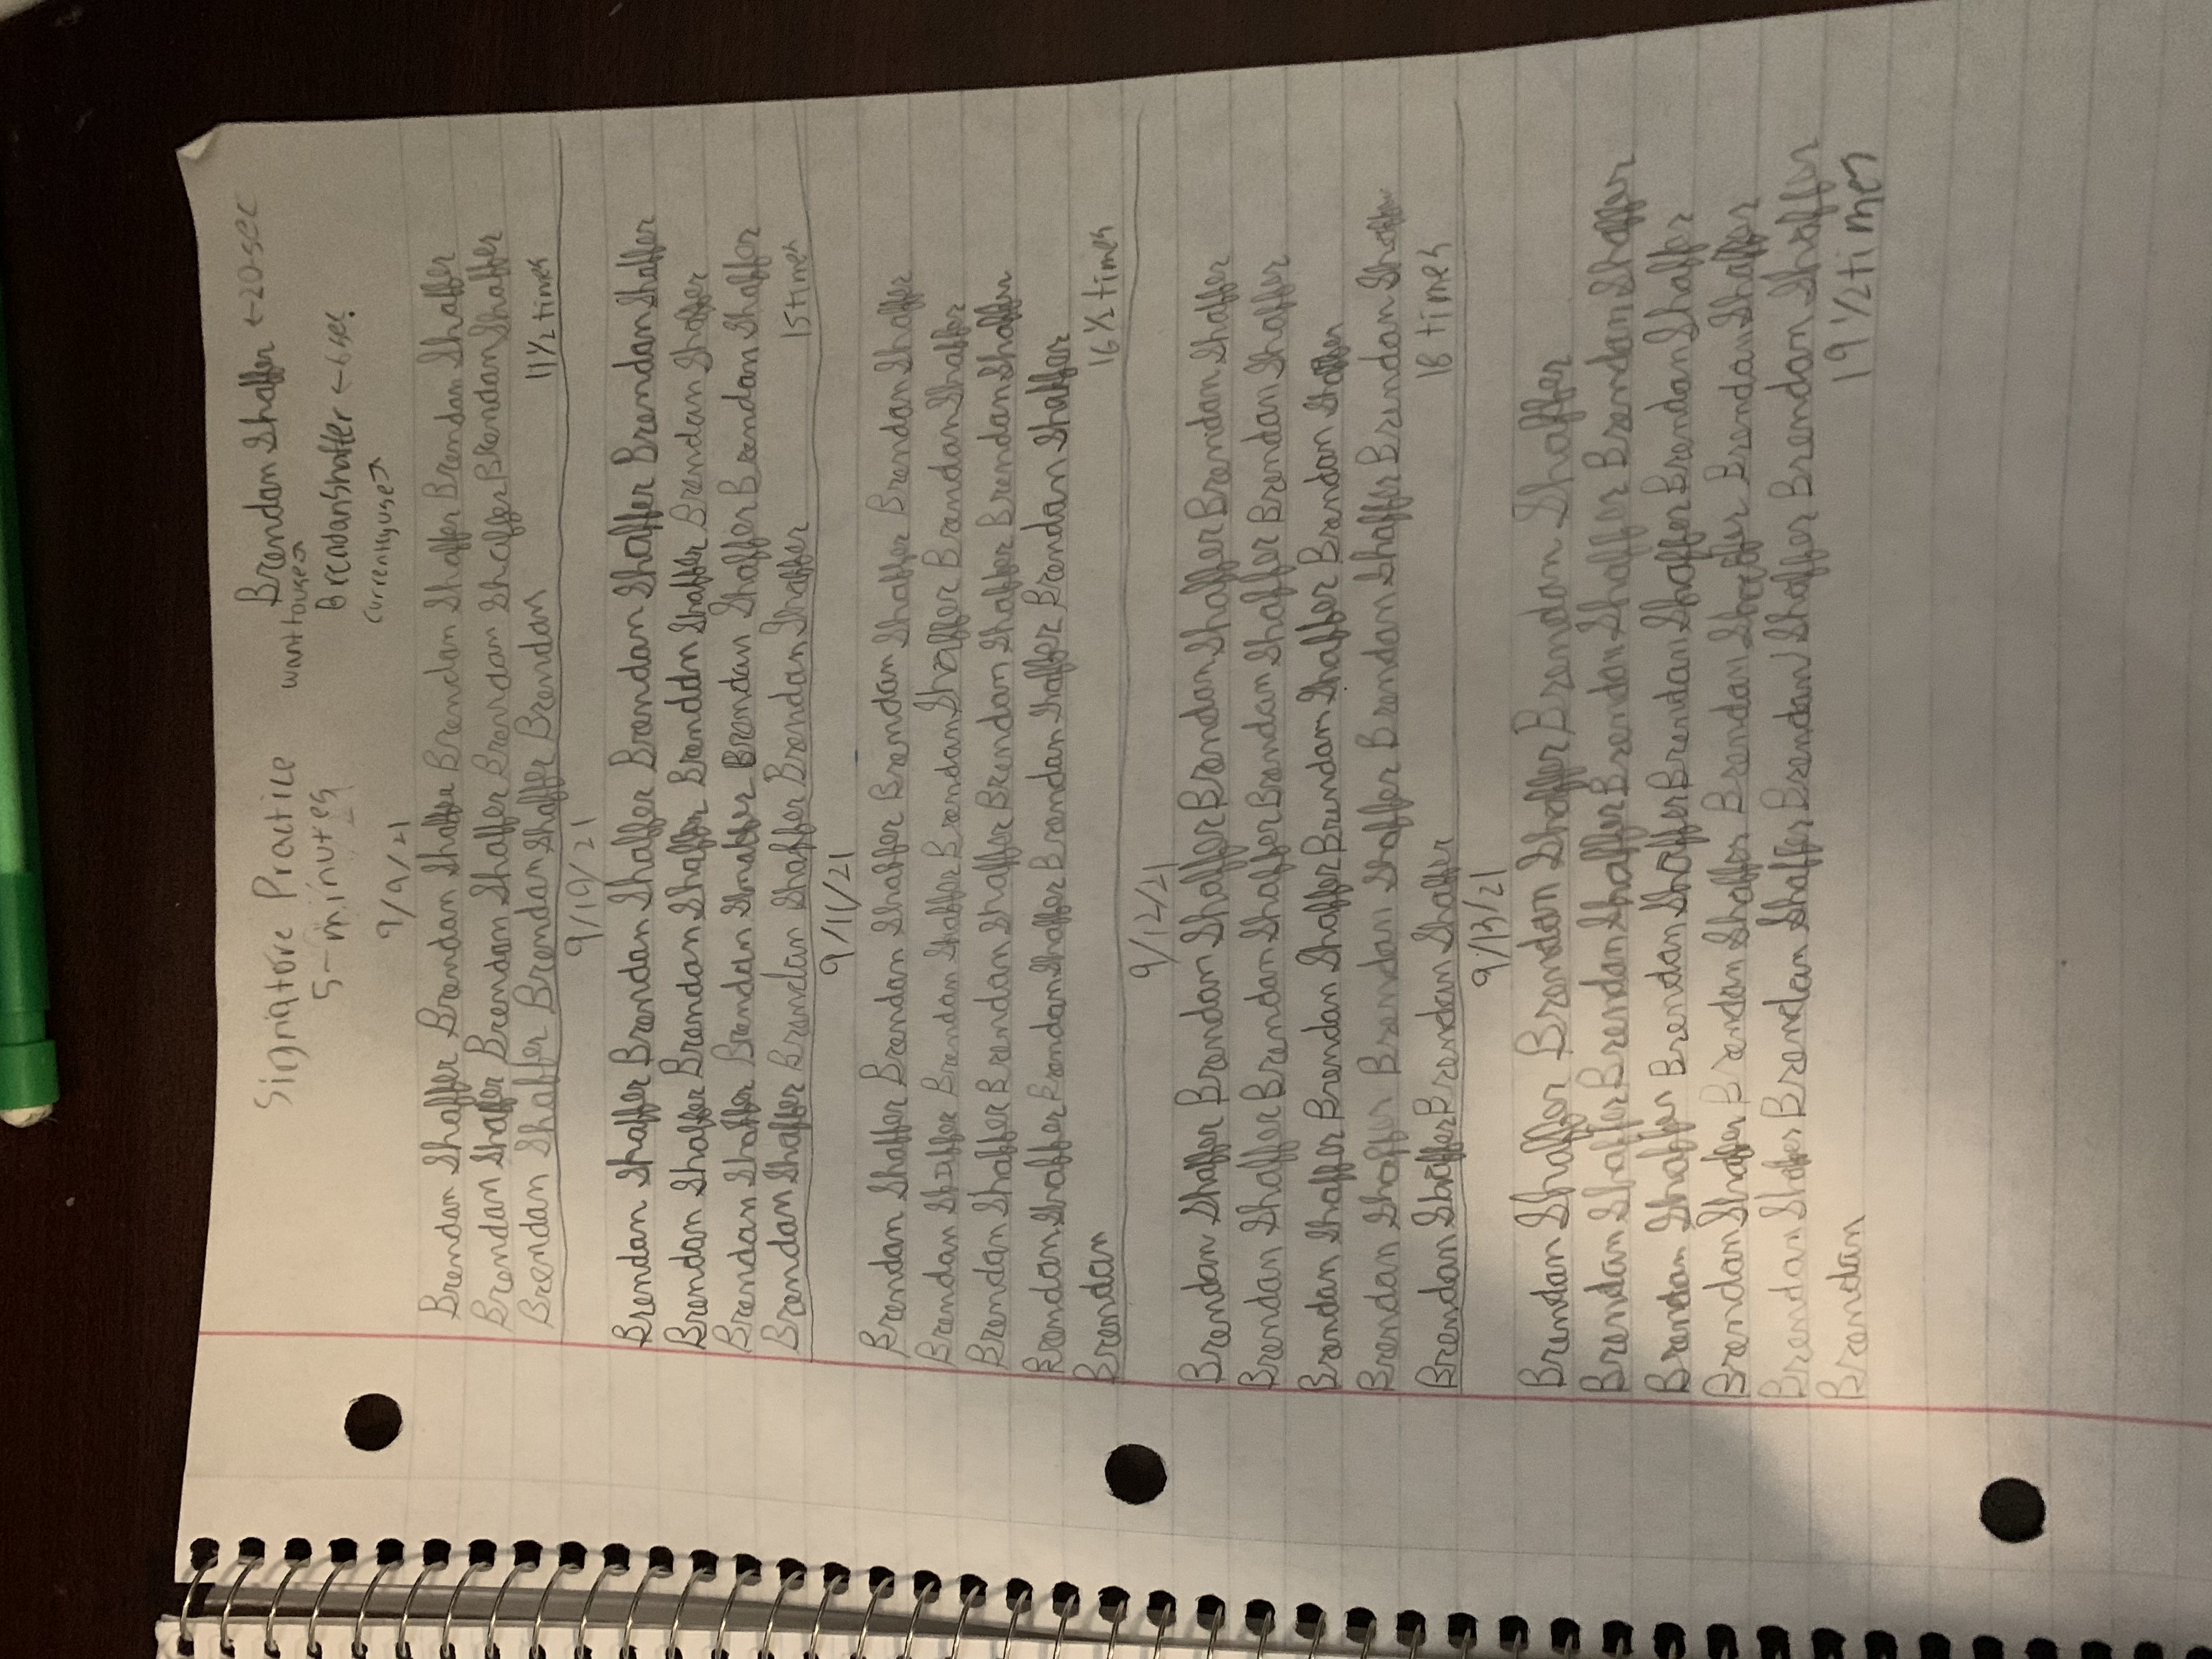 Signature Practice
5-minutes
Brendan Shaffer ←20-sec
want to use↗
Brendan Shaffer ←6 sec.
currently use↗
9/9/21
Brendan Shaffer Brendan Shaffer Brendan Shaffer Brendan Shaffer
Brendan Shaffer Brendan Shaffer Brendan Shaffer Brendan Shaffer
Brendan Shaffer Brendan Shaffer Brendan 11 1/2 times
9/10/21
Brendan Shaffer Brendan Shaffer Brendan Shaffer Brendan Shaffer
Brendan Shaffer Brendan Shaffer Brendan Shaffer Brendan Shaffer
Brendan Shaffer Brendan Shaffer Brendan Shaffer Brendan Shaffer
Brendan Shaffer Brendan Shaffer Brendan Shaffer 15 times
9/11/21
Brendan Shaffer Brendan Shaffer Brendan Shaffer Brendan Shaffer
Brendan Shaffer Brendan Shaffer Brendan Shaffer Brendan Shaffer
Brendan Shaffer Brendan Shaffer Brendan Shaffer Brendan Shaffer
Brendan Shaffer Brendan Shaffer Brendan Shaffer Brendan Shaffer
Brendan 16 1/2 times
9/12/21
Brendan Shaffer Brendan Shaffer Brendan Shaffer Brendan Shaffer
Brendan Shaffer Brendan Shaffer Brendan Shaffer Brendan Shaffer
Brendan Shaffer Brendan Shaffer Brendan Shaffer Brendan Shaffer
Brendan Shaffer Brendan Shaffer Brendan Shaffer Brendan Shaffer
Brendan Shaffer Brendan Shaffer 18 times
9/13/21
Brendan Shaffer Brendan Shaffer Brendan Shaffer
Brendan Shaffer Brendan Shaffer Brendan Shaffer Brendan Shaffer
Brendan Shaffer Brendan Shaffer Brendan Shaffer Brendan Shaffer
Brendan Shaffer Brendan Shaffer Brendan Shaffer Brendan Shaffer
Brendan Shaffer Brendan Shaffer Brendan Shaffer Brendan Shaffer
Brendan 19 1/2 times